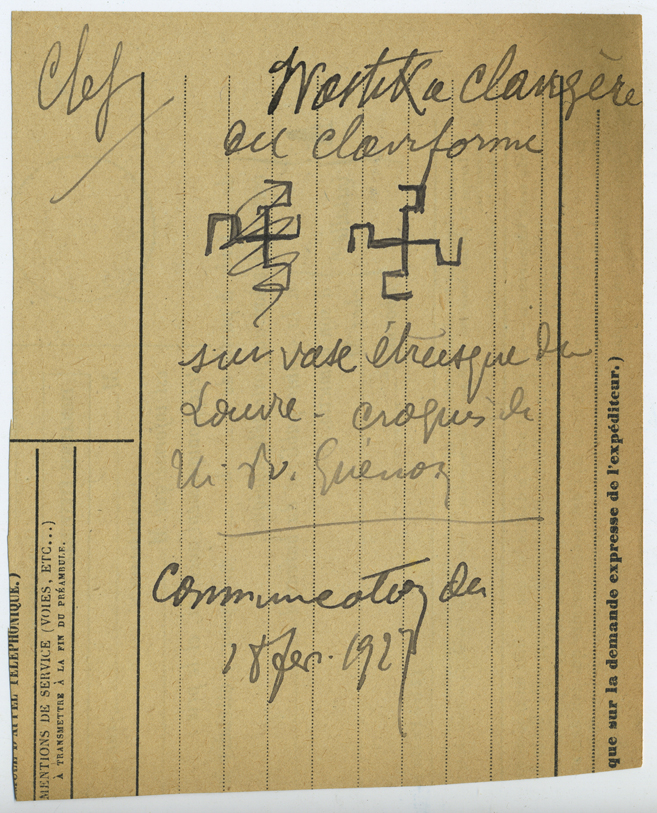 Clef
Wastika clavigère
ou claviforme
sur vase étrusque du
Louvre - croquis de
M. Guénon
Communication du
18 fev. 1927
D'APPEL TÉLÉPHONIQUE.)
MENTIONS DE SERVICE (VOIES, ETC...)
À TRANSMETTRE À LA FIN DU PRÉAMBULE.
que sur la demande expresse de l'expéditeur.)